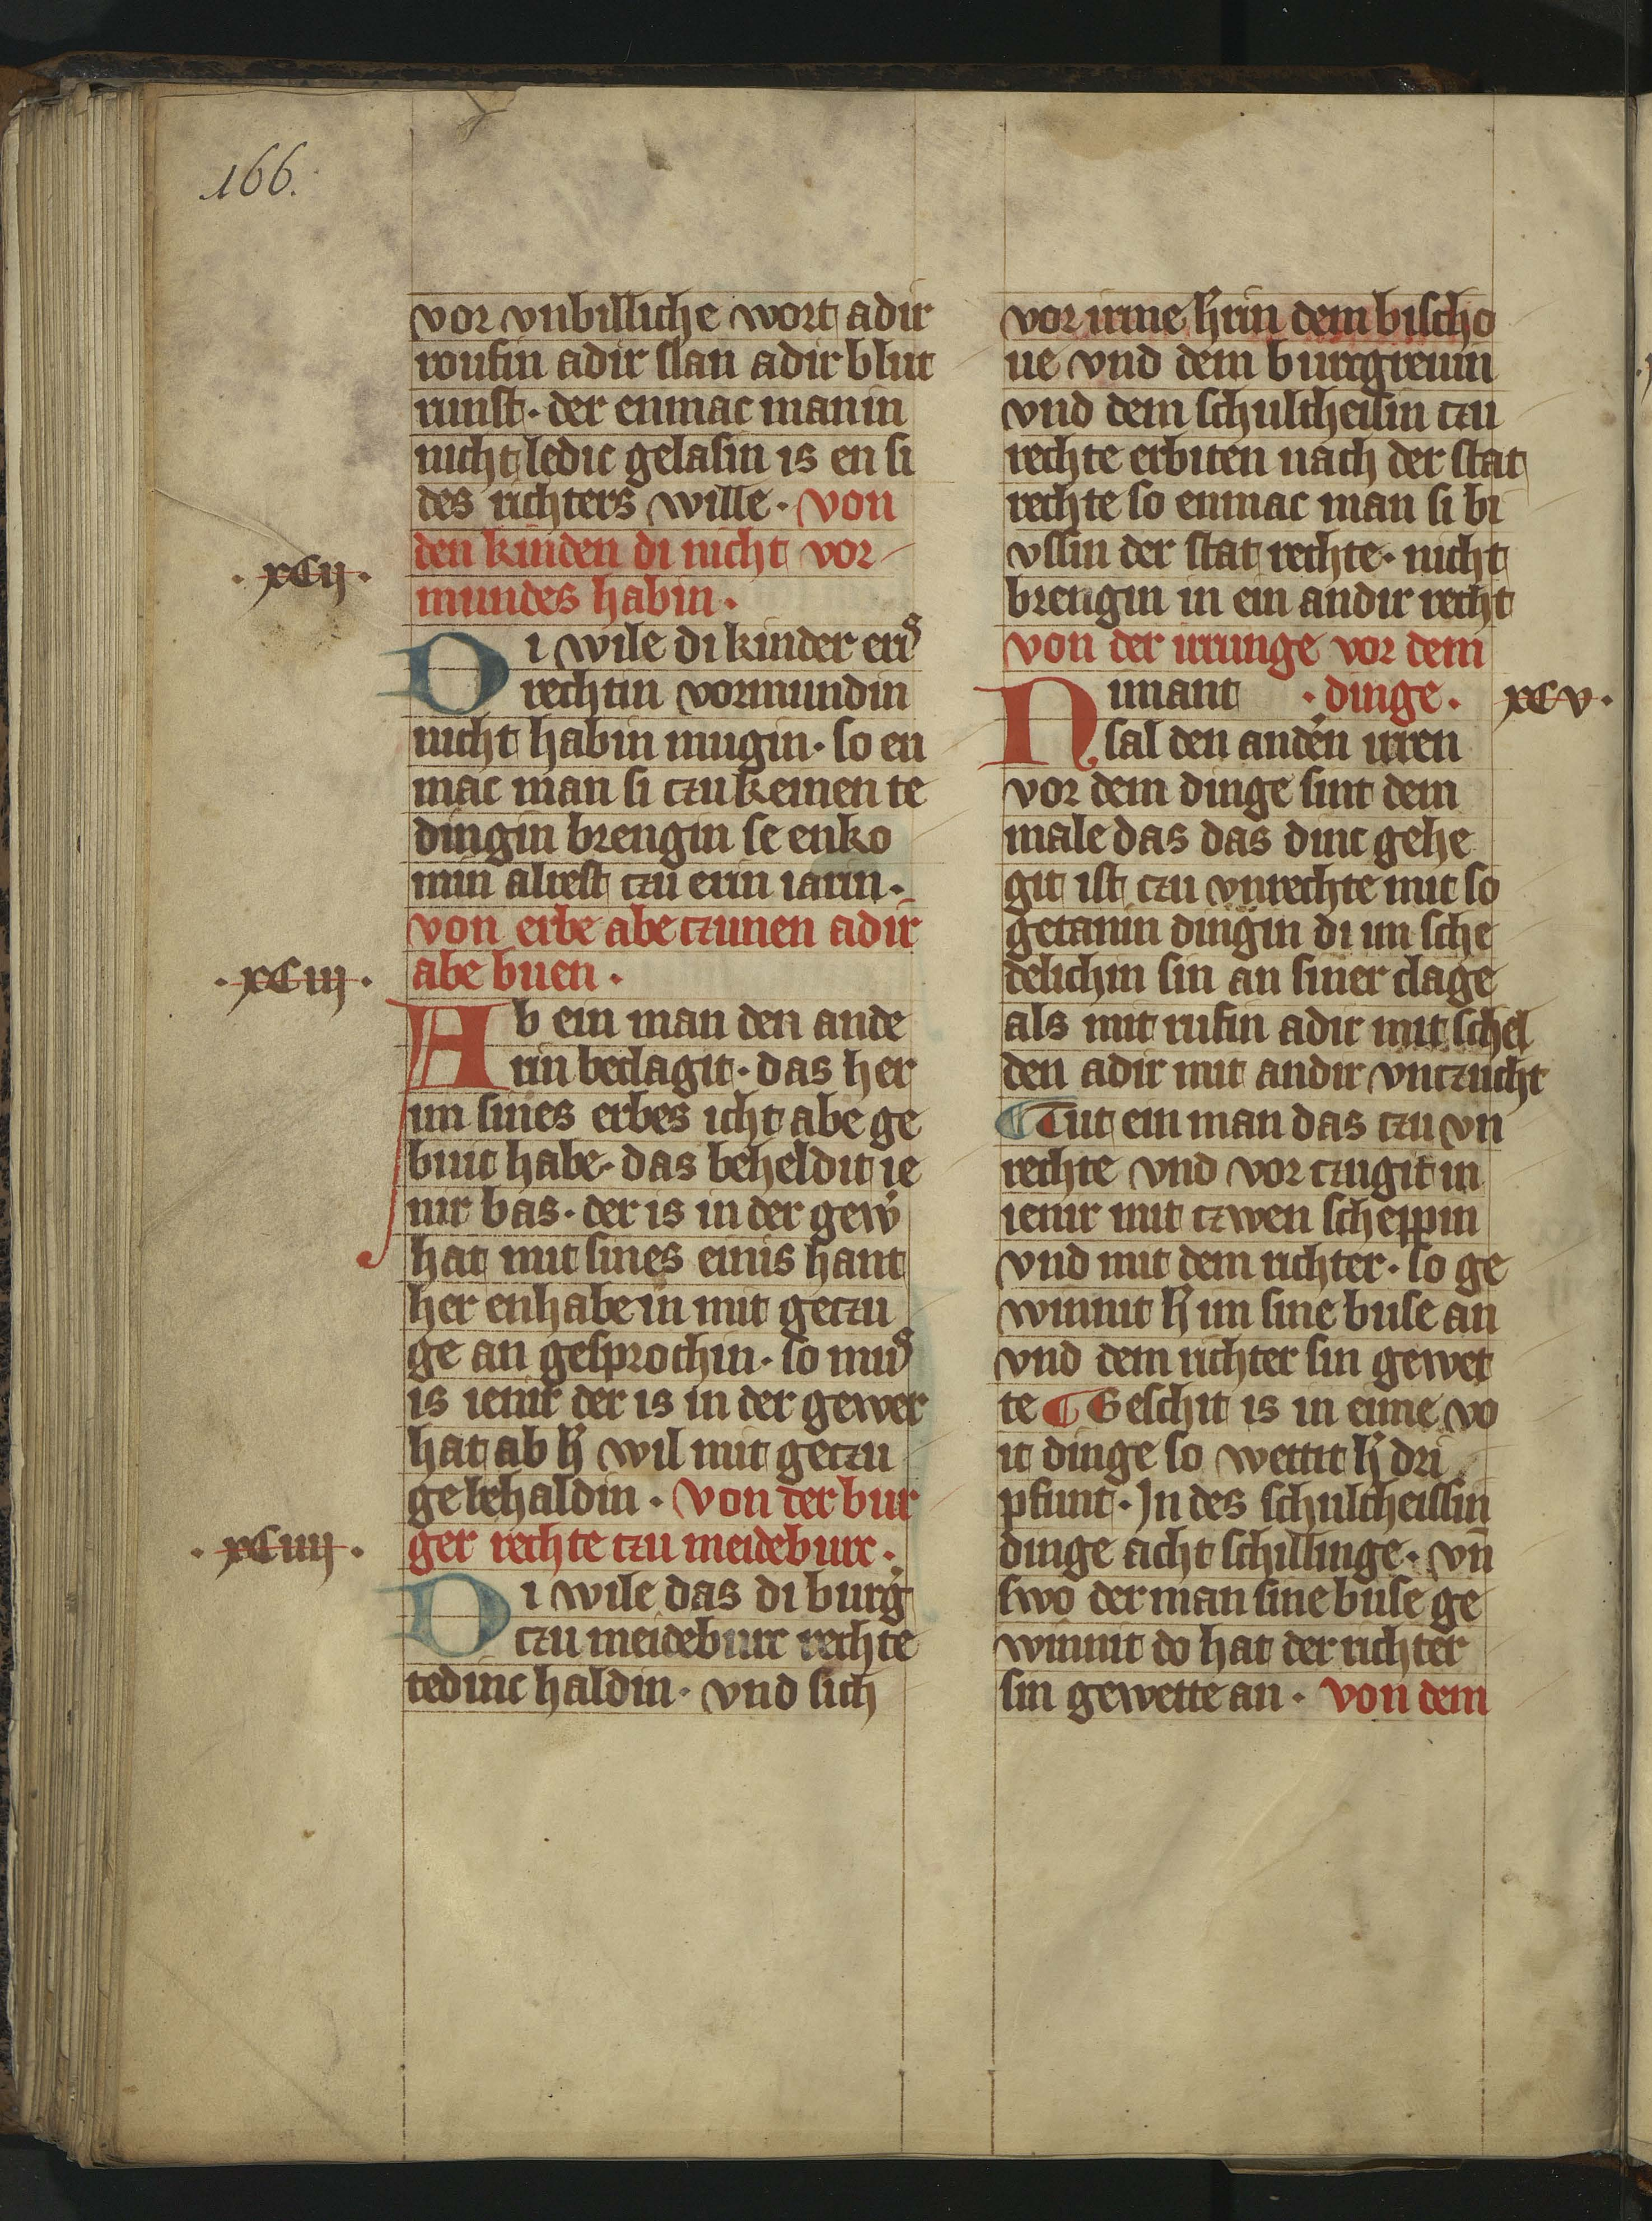 166.
vor vnbilliche wort adir
roufin adir slan adir blut
runst · der enmac man in
nicht ledic gelasin is en si
des richters wille · von
den kinden di nicht vor
· xcij ·
mundes habin ·
Di wile di kinder eris
rechtin vormundin
nicht habin mugin · so en
mac man si czu keinen te
dingin brengin se enko
min alrest czu erin iarin ·
von erbe abe czunen adir
· xciij ·
abe buen ·
Ab ein man den ande
rin beclagit · das her
im sines erbes icht abe ge
buit habe · das beheldit ie
nir bas · der is in der gew̉
hat mit sines einis hant
her enhabe in mit geczu
ge an gesprochin · so mus
is ienir der is in der gewer
hat ab h̉ wil mit geczu
ge behaldin · von der bur
· xciiij ·
ger rechte czu meideburc ·
Di wile das di burg̉
czu meideburc rechte
tedinc haldin · vnd sich
vor irme h̉rin dem bischo
ue vnd dem burcgreuin
vnd dem schultheisin czu
rechte erbiten nach der stat
rechte so enmac man si bi
vssin der stat rechte · nicht
brengin in ein andir recht
von der irrunge vor dem
Nimant · dinge · xcv ·
sal den anden̉ irren
vor dem dinge sint dem
male das das dinc gehe
git ist czu vnrechte mit so
getanin dingin di im sche
delichin sin an siner clage
als mit rufin adir mit schel
den adir mit andir vnczucht
¶ Tut ein man das czu vn
rechte vnd vor czugit in
ienir mit czwen scheppin
vnd mit dem richter · so ge
winnit h̉ im sine buse an
vnd dem richter sin gewet
te ¶ Geschit is in eime vo
it dinge so wettit h̉ dri
pfunt · In des schultheissin
dinge acht schillinge · vn̄
swo der man sine buse ge
winnit do hat der richter
sin gewette an · von dem